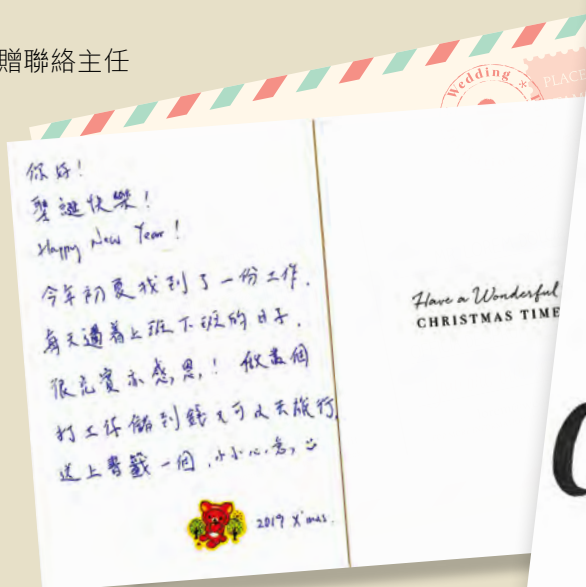 贈聯絡主任
Wedding
PLACE
你好!
聖誕快樂!
Happy New Year!
今年初夏找到了一份工作.
每天過着上班下班的日子.
很充實亦感恩!
打工仔儲到錢又可以去旅行
送上書籤一個,小小心意,
2019 X'mas.
Have a Wonderful
CHRISTMAS TIME